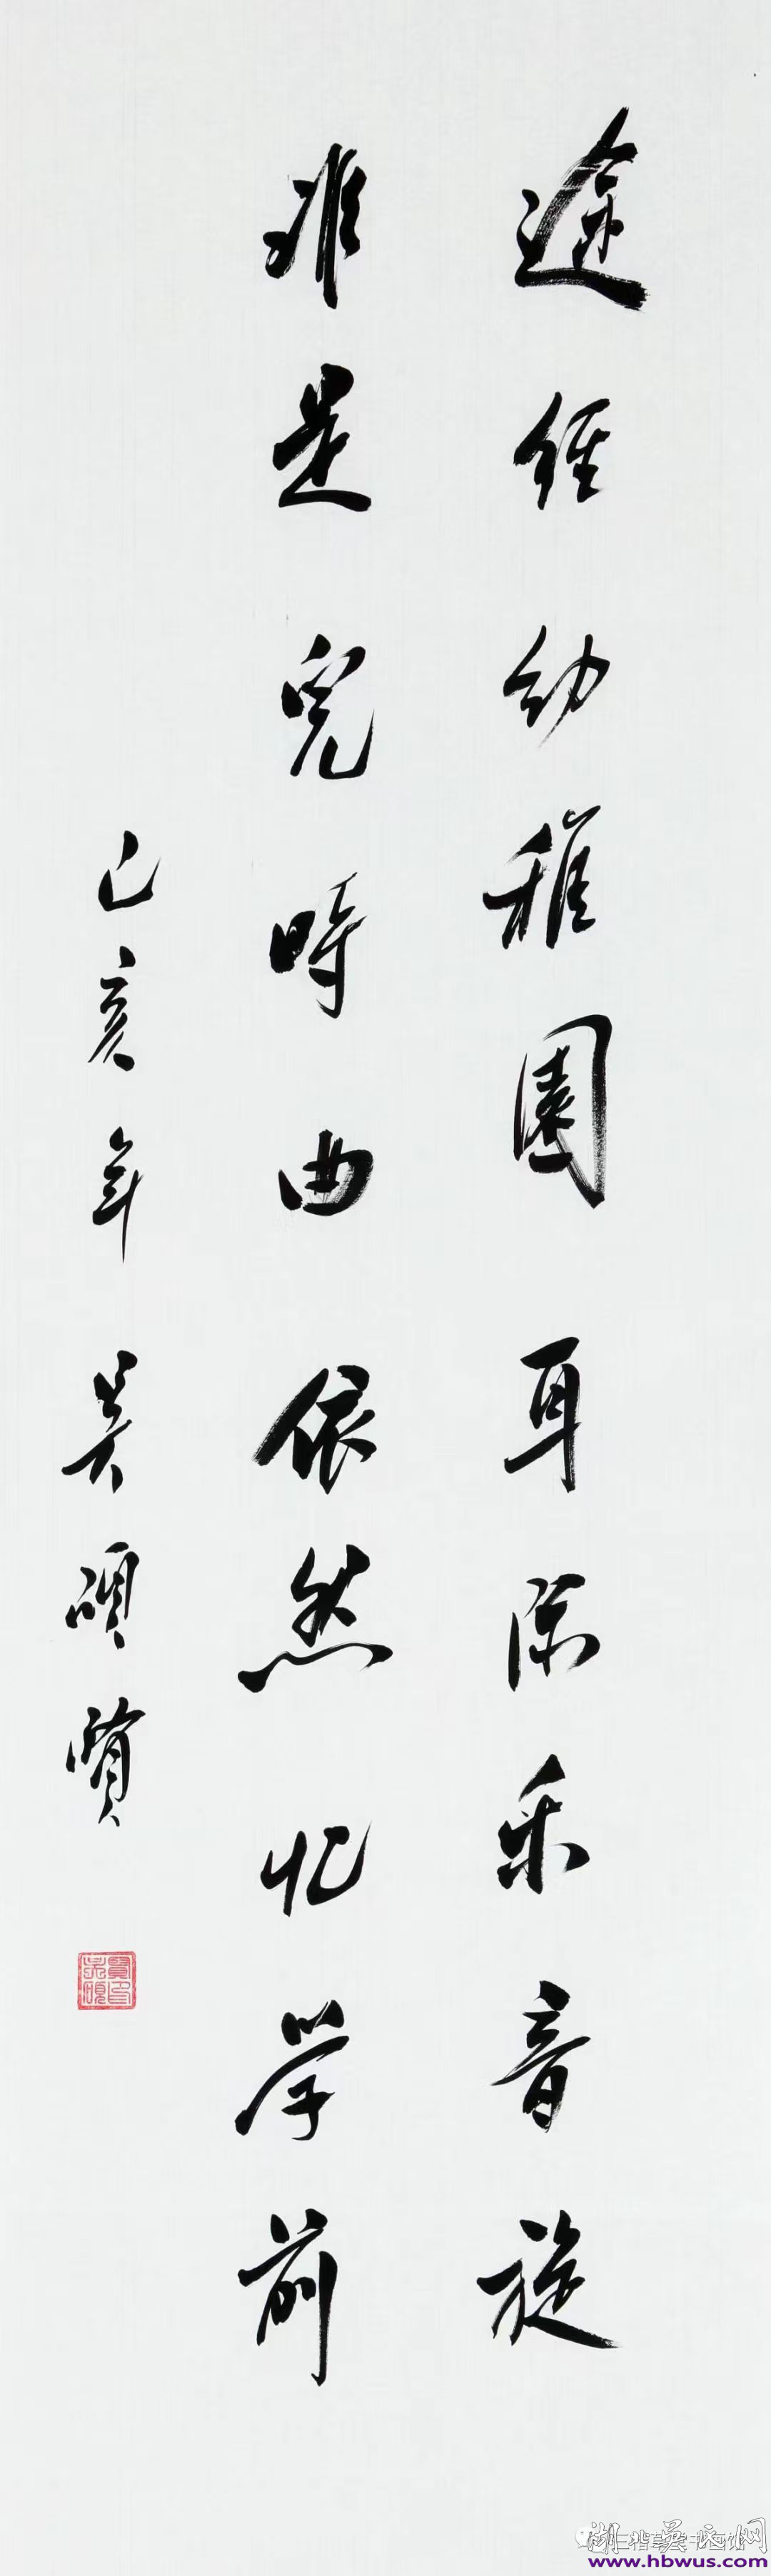 途经幼稚園耳际乐音旋
非是兒時曲依然忆学前
己亥年吴硕贤
湖北吴氏网
www.hbwus.com